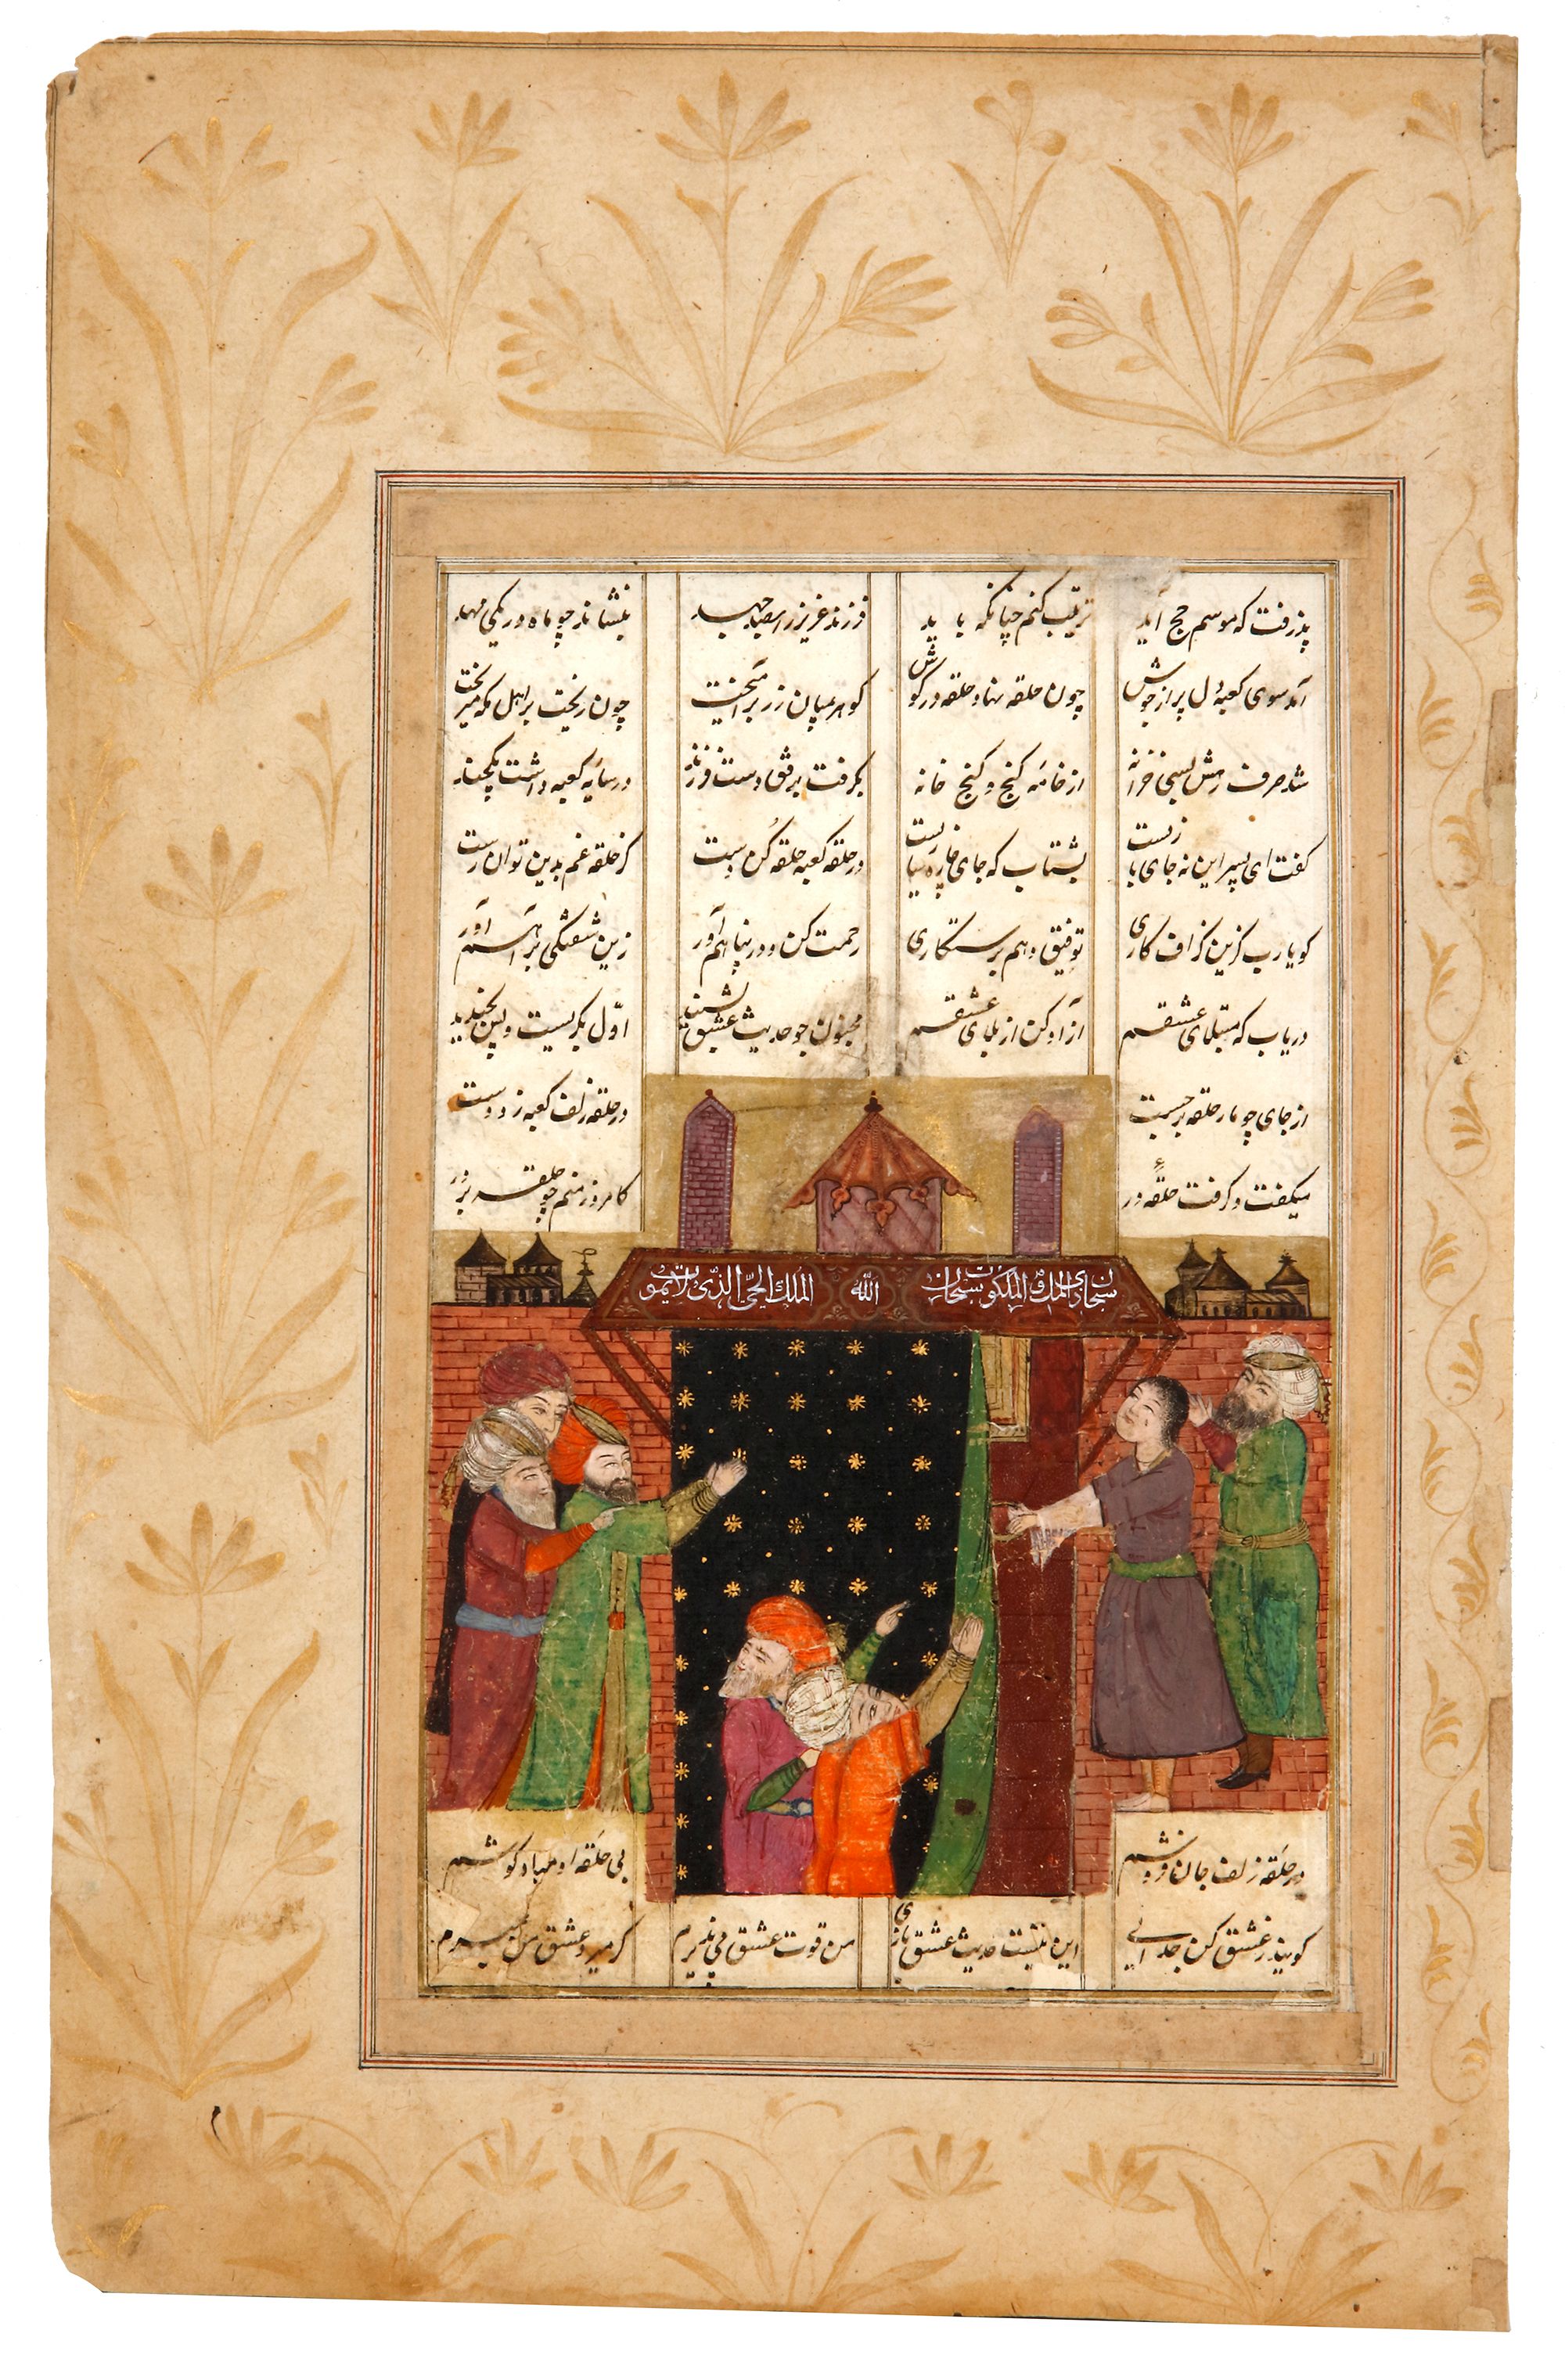 پذرفت که موسم حج آید ترتیب کنم چنانکه باید فرزند عزیز را بصد جهد بنشاند چو ماه در یکی مهد
آمد سوی کعبه دل پر از جوش چون حلقه نهاد حلقه در گوش گوهر بمیان زر برآمیخت چون ریخت بر اهل مکه میریخت
شد صرف زهش بسی خزانه از خانه گنج و گنج خانه بگرفت برفق دست فرزند در سایه کعبه داشت یکچند
گفت ای پسر این نه جای بازیست بشتاب که جای چاره سازیست در حلقه کعبه حلقه کن دست کز حلقه غم بدین توان رست
گو یا رب کزین گزاف کاری توفیق دهم برستگاری رحمت کن و در پناهم آور زین شیفتگی براهم آور
دریاب که مبتلای عشقم آزاد کن از بلای عشقم مجنون چو حدیث عشق بشنید اوّل بگریست و پس بخندید
از جای چو مار حلقه برجست در حلقه زلف کعبه زد دست
میگفت و گرفت حلقه در بر کامروز منم چو حلقه بر در
سبحان ذی الملک و الملکوت سبحان الله الملک الحی الذی لا یموت
در حلقه زلف جان فروشم بی حلقه او مباد گوشم
گویند ز عشق کن جدایی این نیست حدیث عشق بازی من قوت عشق می پذیرم گر میرد عشق من بمیرم